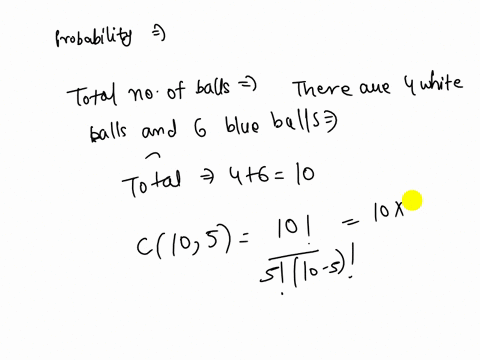 Probability ⇒
Total no. of balls ⇒ There are 4 white
balls and 6 blue balls ⇒
Total ⇒ 4+6=10
C(10,5) = 10! / 5!(10-5)! = 10x